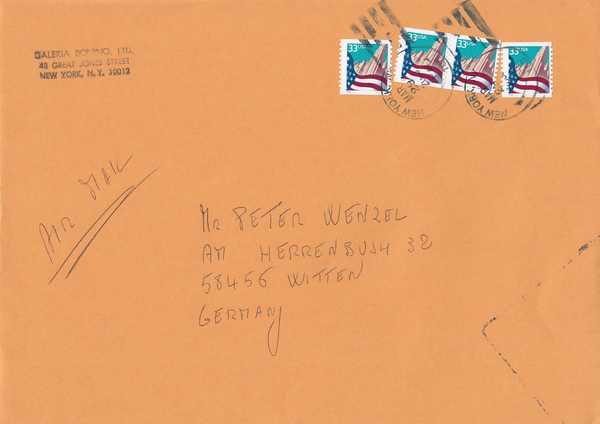 GALERIA BONINO, LTD.
48 GREAT JONES STREET
NEW YORK, N.Y. 10012
33 USA
33 USA
33 USA
33 USA
NEW YORK
MAR
29
NEW YORK
MAR
AIR MAIL
MR PETER WENZEL
AM HERRENBUSH 32
58456 WITTEN
GERMANY